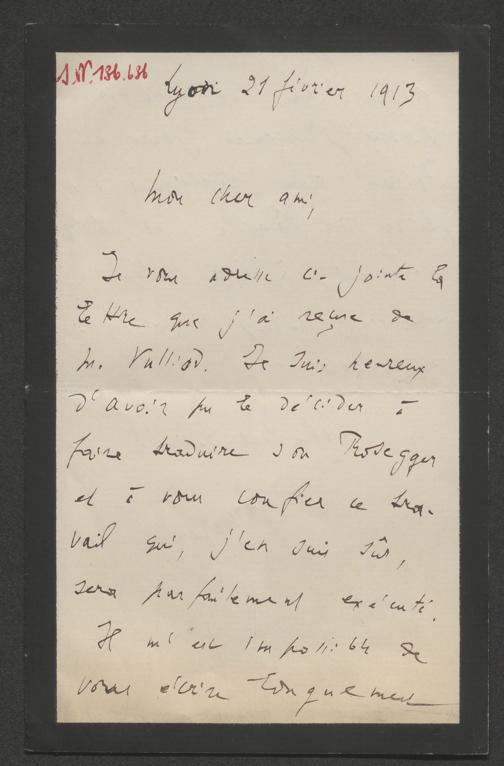 J.N. 136.636
Lyon 21 février 1913
Mon cher ami,
Je vous adresse ci-jointe la
lettre que j'ai reçue de
M. Vulliod. Je suis heureux
d'avoir pu le décider à
faire traduire son Rosegger
et à vous confier ce tra-
vail qui, j'en suis sûr,
sera parfaitement exécuté.
Il m'est impossible de
vous écrire longuement